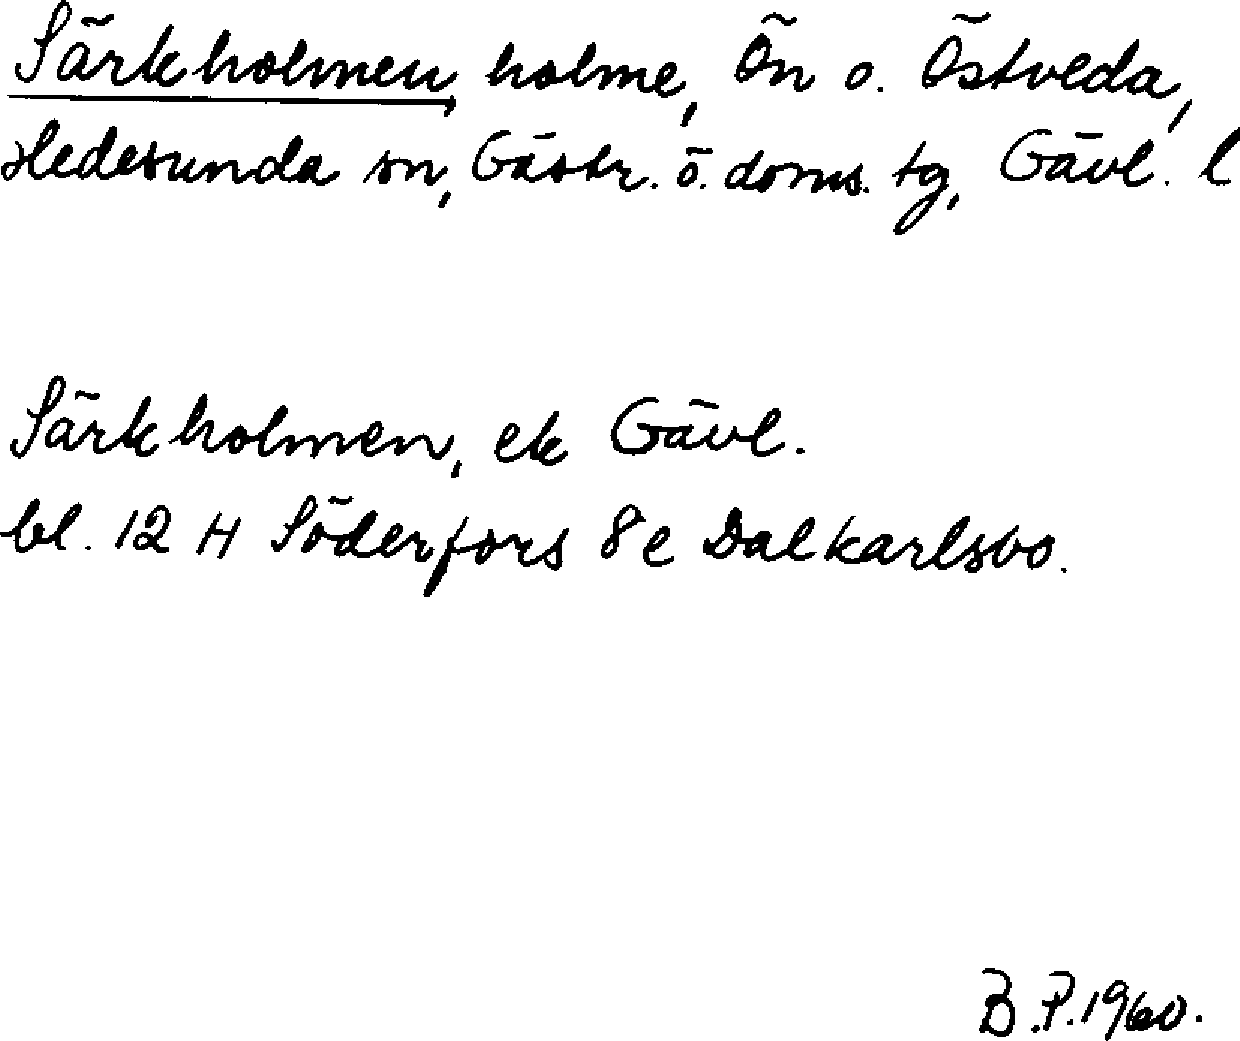 Särkholmen, holme, Ön o. Östveda,
Hedesunda sn, Gästr. ö. doms. tg, Gävl. l
Särkholmen, ek Gävl.
bl. 12 H Söderfors 8 e Dalkarlsbo.
B.P. 1960.